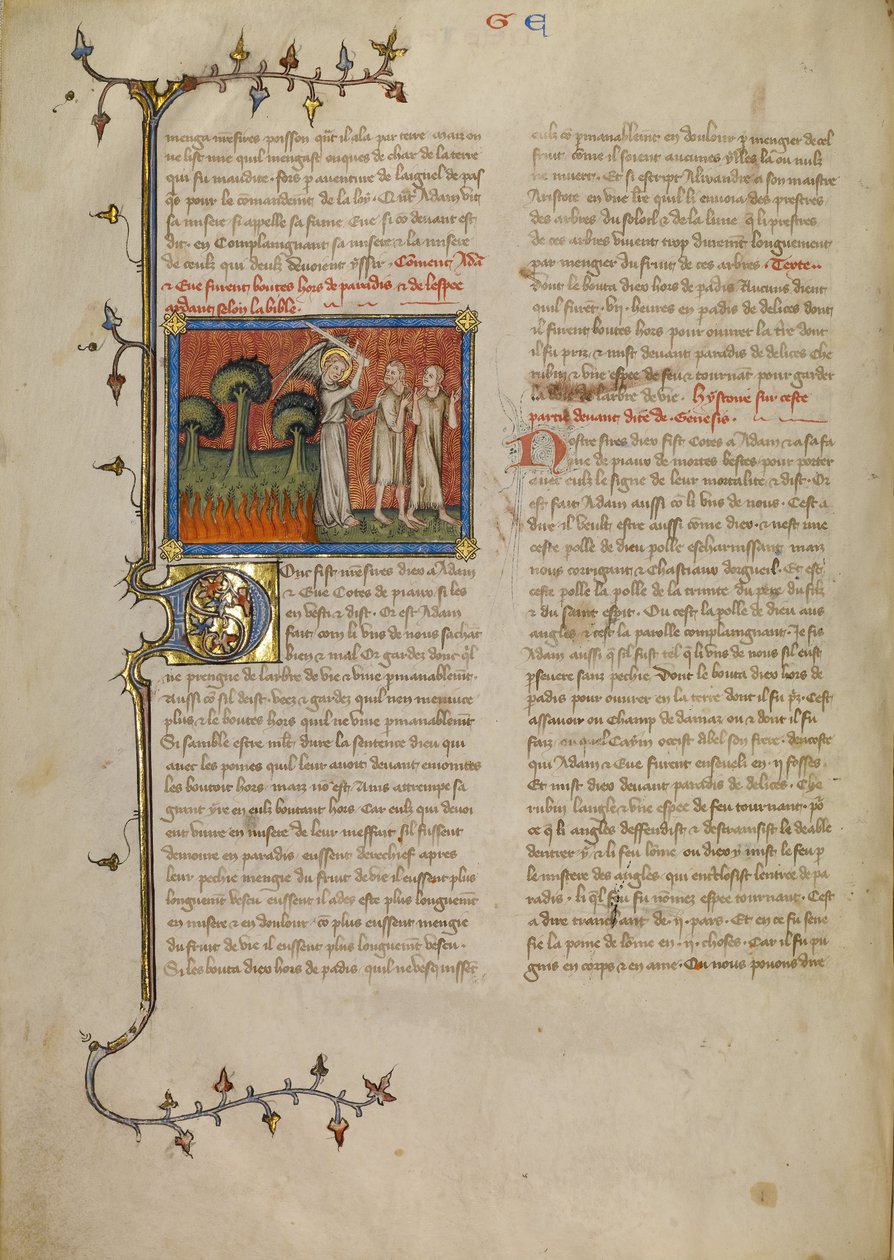 G E
menga nr̃esires poisson qñt il ala par terre. Mais on
ne list mie quil mengast onques de char de la terre
qui fu maudite. fors ꝑ aventure de laignel de pas
q̃s pour le comandemt̃ de la loy. Qñt Adam vit
sa misere. si appelle sa fame. Eue si cō deuant est
dit. en Complaingnant sa misere ⁊ la misere
de ceulz qui deulz deuoient yssir. Cōment Adã
⁊ Eue furent boutes hors de paradis ⁊ de lespee
ardant selon la bible.
Donc fist nr̃esires diex a Adam
⁊ Eue Cotes de piaux si les
en vesti ⁊ dist. Or est Adam
fait com li vns de nous sachãt
bien ⁊ mal Or gardez donc q̃l
ne prengne de larbre de vie ⁊ viue ꝑmanablemt̃.
Aussi cō sil deist. veez ⁊ gardez quil nen menjuce
plus. ⁊ le boutes hors quil ne viue ꝑmanablemt̃
Si samble estre mlt̃ dure la sentence dieu qui
auec les poines quil leur auoit deuant enjointes
les boutoit hors. maiz nō est. Ains attrempe sa
grant yre en eulz boutant hors. Car eulz qui deuoi
ent viure en misere de leur meffait. sil fussent
demoure en paradis. eussent derechief apres
leur pechie mengie du fruit de vie. il eussent plus
longuemt̃ vescu eussent il ades este plus longuemt̃
en misere ⁊ en doulour. cō plus eussent mengie
du fruit de vie il eussent plus longuemt̃ vescu.
Si les bouta diex hors de ꝑadis. quil ne vesquissẽt
eulz cō ꝑmanablemt̃ en doulour ꝑ mengier de cel
fruit. cōme il soient aucunes ylles la ou nulz
ne muert. Et si escript Alixandre a son maistre
Aristote en vne lr̃e quil li enuoia. des prestres
des arbres du soloil ⁊ de la lune q̃ li prestres
de ces arbres viuent trop duremt̃ longuement
par mengier du fruit de ces arbres. Texte.
Dont le bouta diex hors de ꝑadis Aucuns dient
quil furẽt .vij. heures en ꝑadis de delices dont
il furent boutes hors pour ouurer la tr̃e dont
il fu pris. ⁊ mist deuant paradis de delices Che
rubin ⁊ vne espee de feu ⁊ tournãt. pour garder
la voie de larbre de vie. Hystoire sur ceste
partie deuant dite de Genesis.
Nostre sires diex fist Cotes a Adam ⁊ a sa fa
me de piaux de mortes bestes. pour porter
auec eulz le signe de leur mortalite ⁊ dist. Or
est fait Adam aussi cō li vns de nous. Cest a
dire. il veult estre aussi cōme diex. ⁊ nest mie
ceste ꝑolle de dieu ꝑolle escharnissant. maiz
nous corrigant ⁊ Chastiant dorgueil. Et est
ceste ꝑolle la ꝑolle de la trinite. du pere du filz
⁊ du saint esp̃it. Ou cest la ꝑolle de dieu aus
angles. ⁊ cest la parolle complaingnant. Je fis
Adam aussi q̃ sil fust tel q̃ li vns de nous sil eust
ꝑseuere sanz pechie. Dont le bouta diex hors de
ꝑadis pour ouurer en la terre dont il fu p̃z. Cest
assauoir ou Champ de damaz ou ⁊ dont il fu
faiz. ou quel Cayin occist Abel son frere. dencoste
qui Adam ⁊ Eue furent enseueli en .ij. fosses.
Et mist diex deuant paradis de delices. Che
rubin langle ⁊ vne espee de feu tournant. po͂
ce q̃ li angles deffendist ⁊ destrainsist le deable
dentrer y. ⁊ li feu lōme. ou diex y mist le feu ꝑ
le mistere des angles. qui enclosist lentree de pa
radis. li q̃l feu fu nōmez espee tournant. Cest
a dire tranchant de .ij. pars. Et en ce fu sene
fie la poine de lōme en .ij. choses. Car il fu pu
gnis en corps ⁊ en ame. Ou nous pouons dire